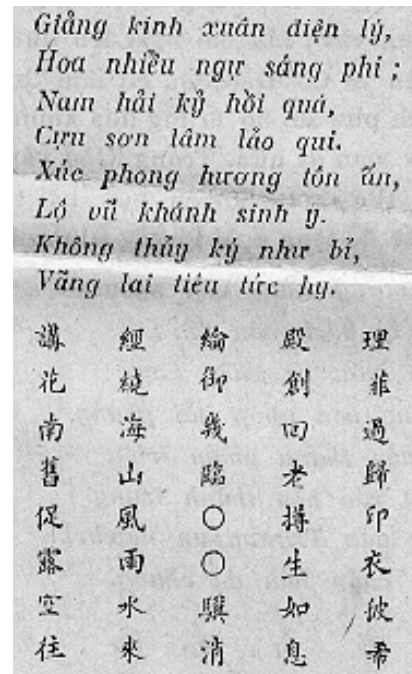 Giảng kinh xuân điện lý,
Hoa nhiễu ngự sáng phi ;
Nam hải kỷ hồi quá,
Cựu sơn lâm lão qui.
Xúc phong hương tôn ấn,
Lộ vũ khánh sinh y.
Không thủy ký như bỉ,
Vãng lai tiêu tức hy.
講 經 綸 殿 理
花 繞 御 創 菲
南 海 幾 回 過
舊 山 臨 老 歸
促 風 ○ 撙 印
露 雨 ○ 生 衣
空 水 驥 如 彼
往 來 消 息 希